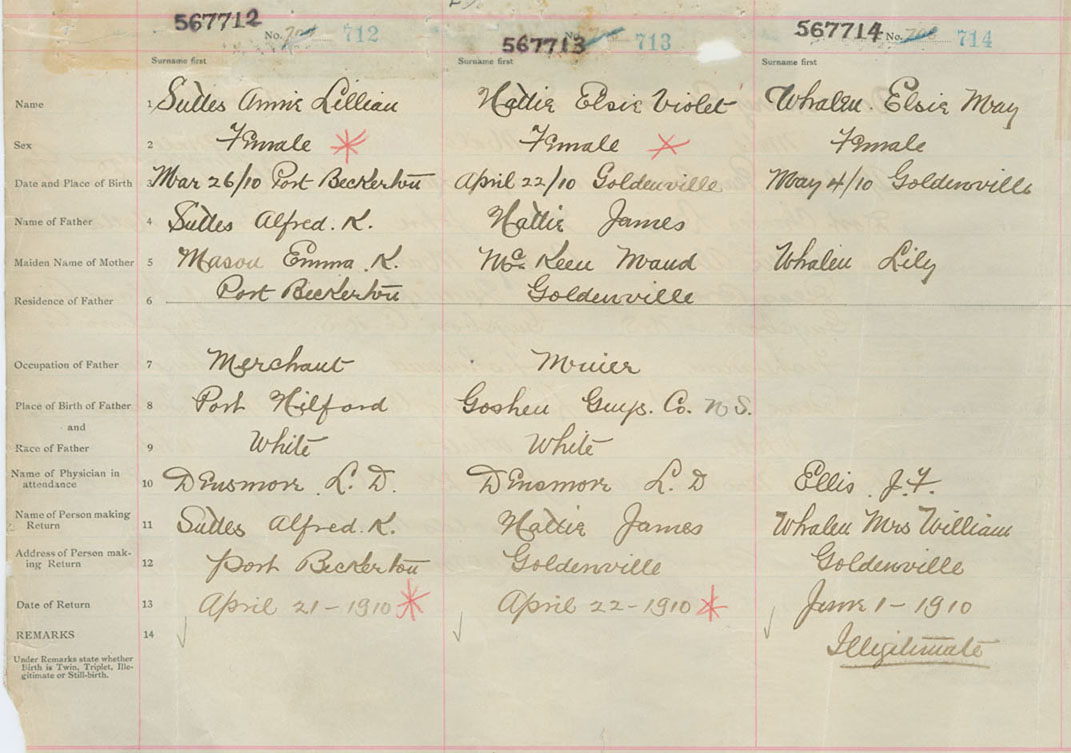 567712 No. 712 567713 No. 713 567714 No. 714
Surname first Surname first Surname first
Name 1 Suttes Annie Lillian Hattie Elsie Violet Whalen. Elsie May
Sex 2 Female Female Female
Date and Place of Birth 3 Mar 26/10 Port Beckerton April 22/10 Goldenville May 4/10 Goldenville
Name of Father 4 Suttes Alfred. K. Hattie James
Maiden Name of Mother 5 Mason Emma. K. McKeen Maud Whalen Lily
Residence of Father 6 Port Beckerton Goldenville
Occupation of Father 7 Merchant Minier
Place of Birth of Father 8 Port Hilford Goshen Guys. Co. N S.
and
Race of Father 9 White White
Name of Physician in
attendance 10 Densmore. L. D. Densmore L. D Ellis. J. F.
Name of Person making
Return 11 Suttes Alfred. K. Hattie James Whalen Mrs William
Address of Person mak-
ing Return 12 Port Beckerton Goldenville Goldenville
Date of Return 13 April 21 - 1910 April 22 - 1910 June 1 - 1910
REMARKS 14 Illigitimate
Under Remarks state whether
Birth is Twin, Triplet, Ille-
gitimate or Still-birth.